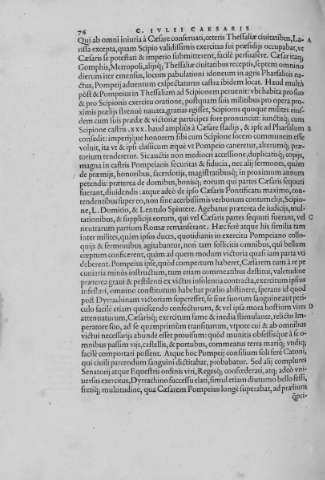 76 C. IVLII CAESARIS
Qui ab omni iniuria à Cæsare conseruati, ceteris Thessaliæ ciuitatibus, La- A
rissa excepta, quam Scipio validissimis exercitus sui præsidijs occupabat, vt
Cæsaris se potestati & imperio submitterent, facilè persuasere. Cæsar itaq;
Gomphis, Metropoli, alijsq; Thessaliæ ciuitatibus receptis, septem omnino
dierum iter emensus, locum pabulationi idoneum in agris Pharsalicis na-
ctus, Pompeij aduentum castra ibidem locat. Haud multò
pòst & Pompeius in Thessaliam ad Scipionem peruenit: vbi habita pro suo
& pro Scipionis exercitu oratione, postquam suis militibus pro opera pro-
ximis prælijs strenuè nauata, gratias egisset, Scipionis quoque milites
dem cum suis prædæ & victoriæ participes fore pronunciat: iunctisq; cum
Scipione castris .xxx. haud amplius à Cæsare stadijs, & ipse ad Pharsalum
consedit: imperijque honorem sibi cum Scipione socero communem esse
voluit, ita vt & ipsi classicum æque vt Pompeio caneretur, alterumq; præ-
torium tenderetur. Sic auctis non mediocri accessione, duplicatisq; copijs,
magna in castris Pompeianis securitas & fiducia, nec alij sermones, quàm
de præmijs, honoribus, sacerdotijs, magistratibusq; in proximum annum
petendis: præterea de domibus, bonisq; eorum qui partes Cæsaris sequuti
fuerant, diuidendis: atque adeò de ipsius Cæsaris Pontificatu maximo, con-
tendentibus super eo, non sine acerbissimis verborum contumelijs, Scipio-
ne, L. Domitio, & Lentulo Spintere. Agebatur præterea de iudicijs, mul-
tationibus, & supplicijs eorum, qui vel Cæsaris partes sequuti fuerant, vel C
neutrarum partium Romæ remansissent. Hæc fuere atque his similia tam
inter milites, quàm ipsos duces, quotidianis in exercitu Pompeiano collo-
quijs & sermonibus agitabantur, non tam solliciti omnibus, qui bellum
cœptum conficerent, quàm ad quem modum victoria quasi iam parta vti
deberent. Pompeius ipse, quòd compertum haberet, Cæsarem tum à re pe
cuniaria minùs instructum, tum etiam commeatibus destitui, valetudine
præterea graui & pestilenti ex victus insolentia contracta, exercitum ipsius
infestari, omnino constitutum habebat prælio abstinere, sperans id quod
post Dyrrachinam victoriam superesset, se sine suorum sanguine aut peri-
culo facilè etiam quiescendo confecturum, & vel ipsa mora hostium vires D
attenuaturum, Cæsarisq; exercitum fame & inedia simulante, relicto Im-
peratore suo, ad se quamprimùm transiturum, vtpote cui & ab omnibus
victui necessarijs abunde esset prouisum: quòd munitis obsessisque à se o-
mnibus passim vijs, castellis, & portubus, commeatus terra mariq; vndiq;
facilè comportari possent. Atque hoc Pompeij consilium soli ferè Catoni,
qui ciuili parcendum sanguini dictitabat, probabatur. Sed alij complures
Senatorij atque Equestris ordinis viri, Regesq; confœderati, atq; adeò vni-
uersus exercitus, Dyrrachino successu elati, simul etiam diuturno bello fessi,
freti multitudine, qua Cæsarem Pompeius longè superabat, ad prælium